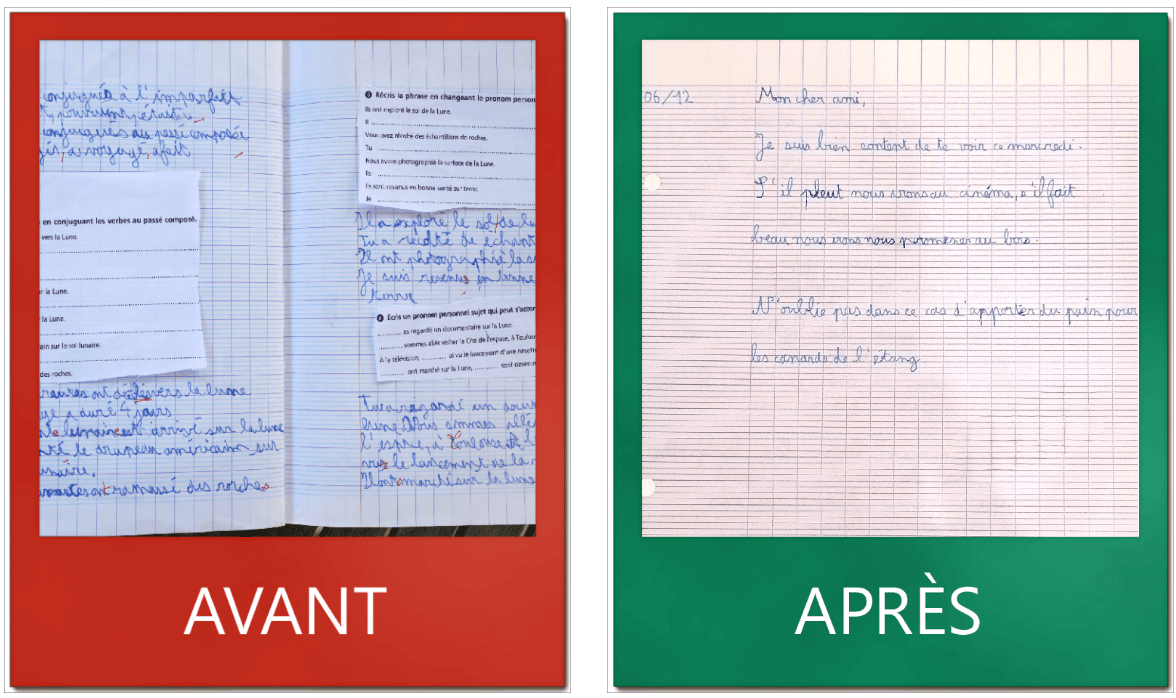 conjugués à l'imparfait
t, pouvaient, était
conjugués au passé composé
a voyagé, a fait
s en conjuguant les verbes au passé composé.
vers la Lune.
r la Lune.
la Lune.
ain sur le sol lunaire.
des roches.
vers la lune
ge a duré 4 jours
arrivé sur la lune
nté le drapeau américain sur
unaire.
ont ramassé des roches
1 Récris la phrase en changeant le pronom person
Ils ont exploré le sol de la Lune.
Il
Vous avez récolté des échantillons de roches.
Tu
Nous avons photographié la surface de la Lune.
Ils
Ils sont revenus en bonne santé sur terre.
Je
Il a explore le sol de lu
Tu a récolté de échant
Il ont photographié la s
Je suis revenue en bonne
terre
2 Écris un pronom personnel sujet qui peut s'accor
es regardé un documentaire sur la Lune.
sommes allés visiter la Cité de l'espace, à Toulou
À la télévision, ai vu le lancement d'une navett
ont marché sur la Lune, sont
Tu un
lune. Nous sommes allé
à Toulouse
le lancement de la
Il ont marché sur la lune
AVANT
06/12
Mon cher ami,
Je suis bien content de te voir ce mercredi.
S'il pleut nous irons au cinéma, s'il fait
beau nous irons nous promener au bois.
N'oublie pas dans ce cas d'apporter du pain pour
les canards de l'étang
APRÈS